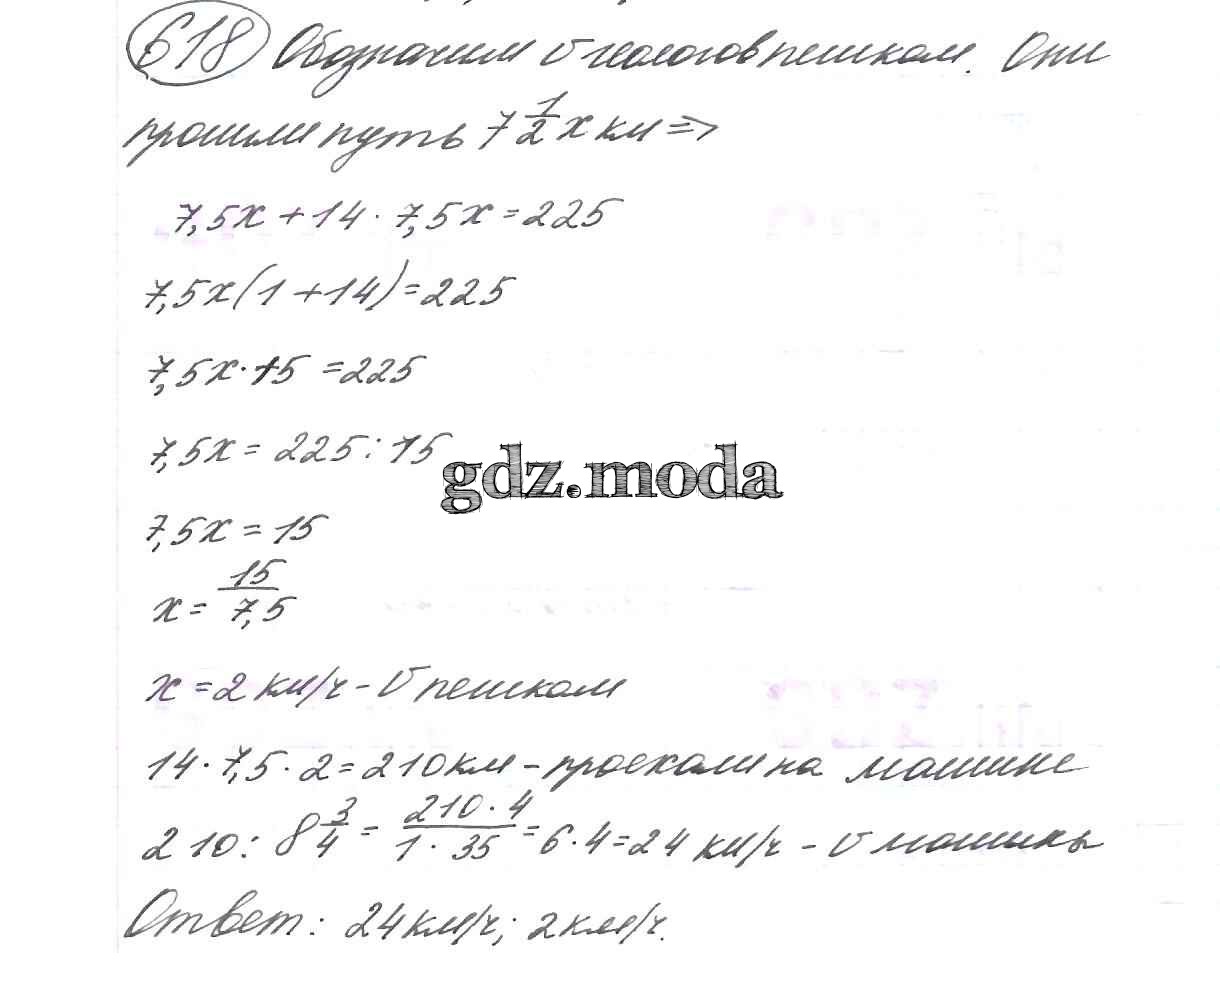 618 Обозначим v геологов пешком. Они
прошли путь 7 1/2 x км =>
7,5x + 14 · 7,5x = 225
7,5x(1 + 14) = 225
7,5x · 15 = 225
7,5x = 225 : 15
gdz.moda
7,5x = 15
x = 15/7,5
x = 2 км/ч - v пешком
14 · 7,5 · 2 = 210 км - проехали на машине
210 : 8 3/4 = 210 · 4/1 · 35 = 6 · 4 = 24 км/ч - v машины
Ответ: 24 км/ч; 2 км/ч.